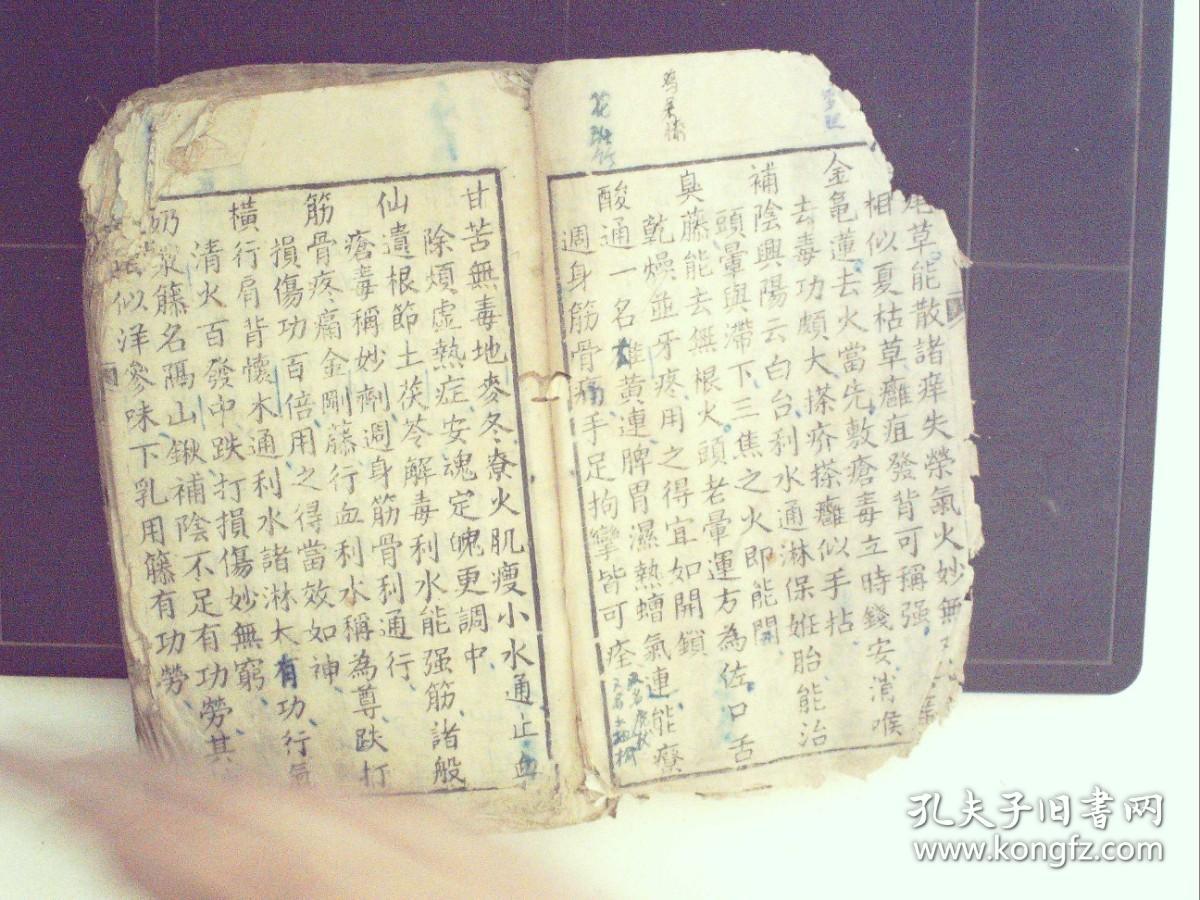 尾草能散諸痒失榮氣火妙無
相似夏枯草癰疽發背可稱强
金龜蓮去火當先敷瘡毒立時錢安消喉
去毒功頗大搽疥搽癰似手拈
補陰興陽云白台利水通淋保姙胎能治
頭暈與滯下三焦之火即能開
臭藤能去無根火頭老暈運方為佐口舌
乾燥並牙疼用之得宜如開鎖
酸通一名雄黃連脾胃濕熱蟾氣連能療
週身筋骨痛手足拘攣皆可痊
花斑竹
甘苦無毒地麥冬尞火肌瘦小水通止血
除煩虛熱症安魂定魄更調中
仙遺根節土茯苓解毒利水能强筋諸般
瘡毒稱妙劑週身筋骨利通行
筋骨疼痛金剛藤行血利水稱為尊跌打
損傷功百倍用之得當效如神
橫行肩背懷木通利水諸淋大有功行氣
清火百發中跌打損傷妙無窮
奶漿籐名隔山鍬補陰不足有功勞其
似洋參味下乳用籐有功勞
孔夫子旧书网
www.kongfz.com